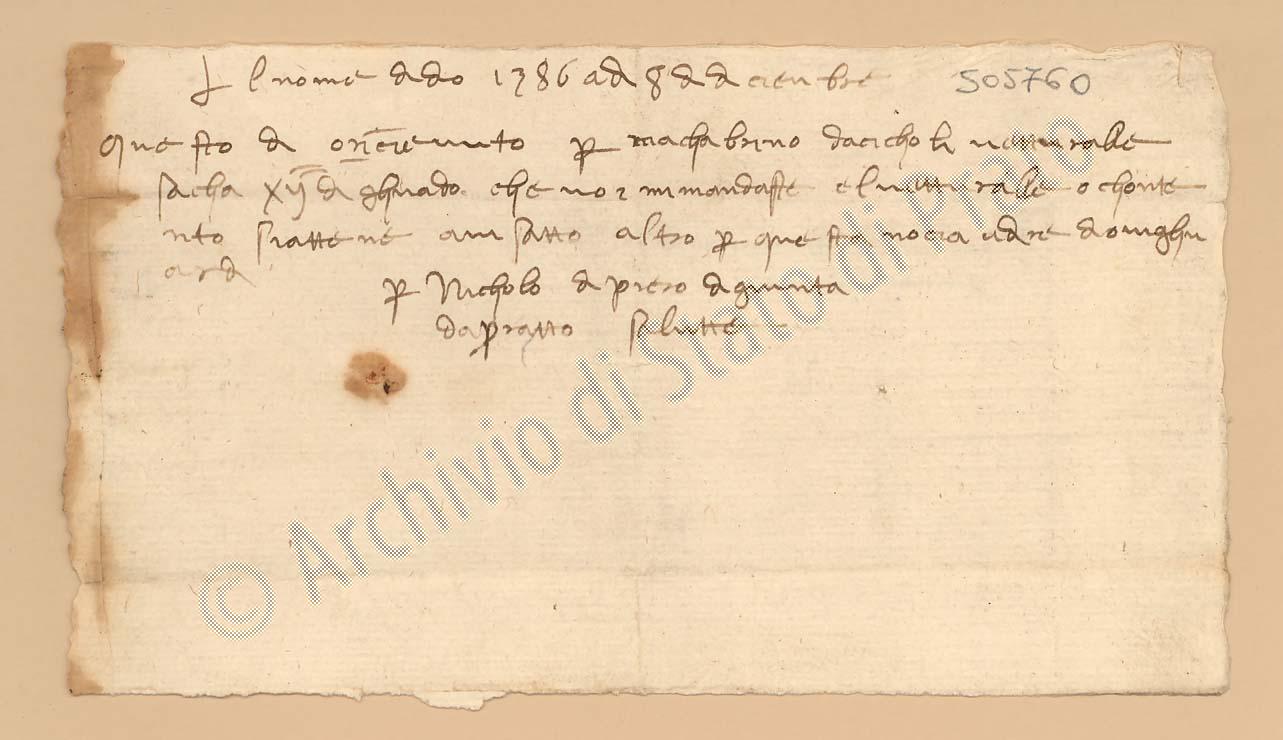 ✝ l nome di dio 1386 a dì 8 di dicienbre 505760
questo dì ò ricievuto per machabruno da cicholi vetturalle
sacha XII di ghuado che voi mi mandaste el vitturalle ò chonte
nto siattene avisatto altro per questa no cia a dire dio vi ghu
ardi
per Nicholo di piero di giunta
da pratto salutte
© Archivio di Stato di Prato